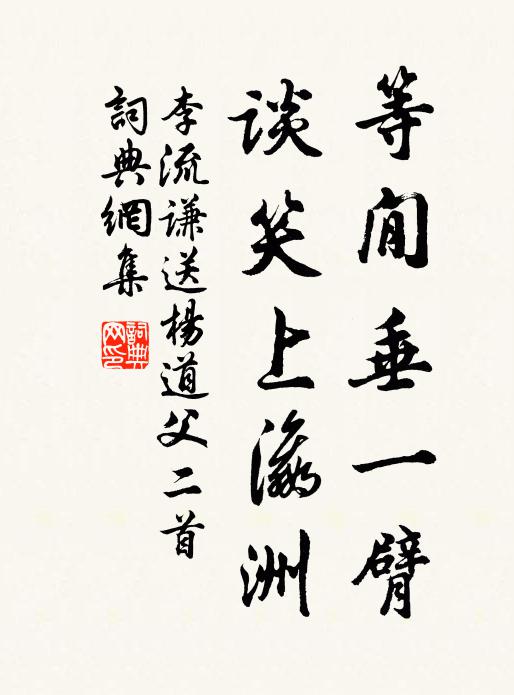 等閒垂一臂
談笑上瀛洲
李流謙送楊道父二首
詞典網集
詞典網印